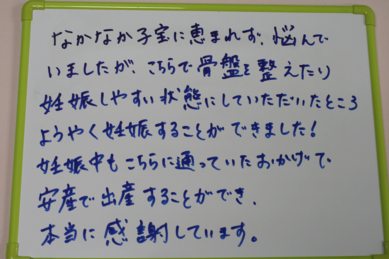 なかなか子宝に恵まれず、悩んで
いましたが、こちらで骨盤を整えたり
妊娠しやすい状態にしていただいたところ
ようやく妊娠することができました!
妊娠中もこちらに通っていたおかげで
安産で出産することができ、
本当に感謝しています。